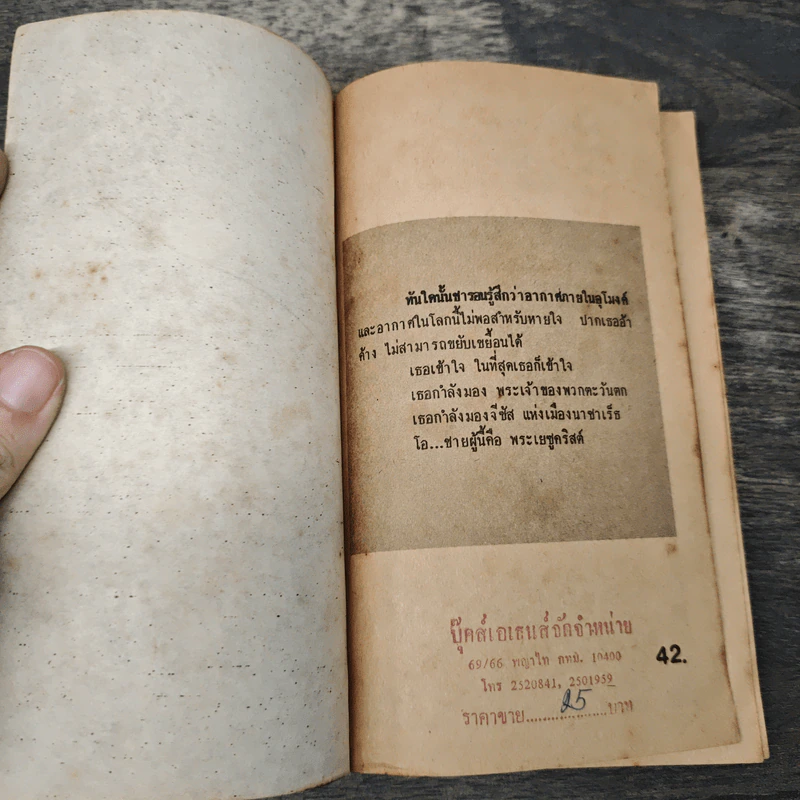 ทันใดนั้นชารอนรู้สึกว่าอากาศภายในอุโมงค์
และอากาศในโลกนี้ไม่พอสำหรับหายใจ ปากเธออ้า
ค้าง ไม่สามารถขยับเขยื้อนได้
เธอเข้าใจ ในที่สุดเธอก็เข้าใจ
เธอกำลังมอง พระเจ้าของพวกตะวันตก
เธอกำลังมองจีซัส แห่งเมืองนาซาเร็ธ
โอ...ชายผู้นี้คือ พระเยซูคริสต์
บุ๊คส์เอเยนส์จัดจำหน่าย
69/66 พญาไท กทม. 10400
โทร 2520841, 2501959
ราคาขาย....25....บาท
42.